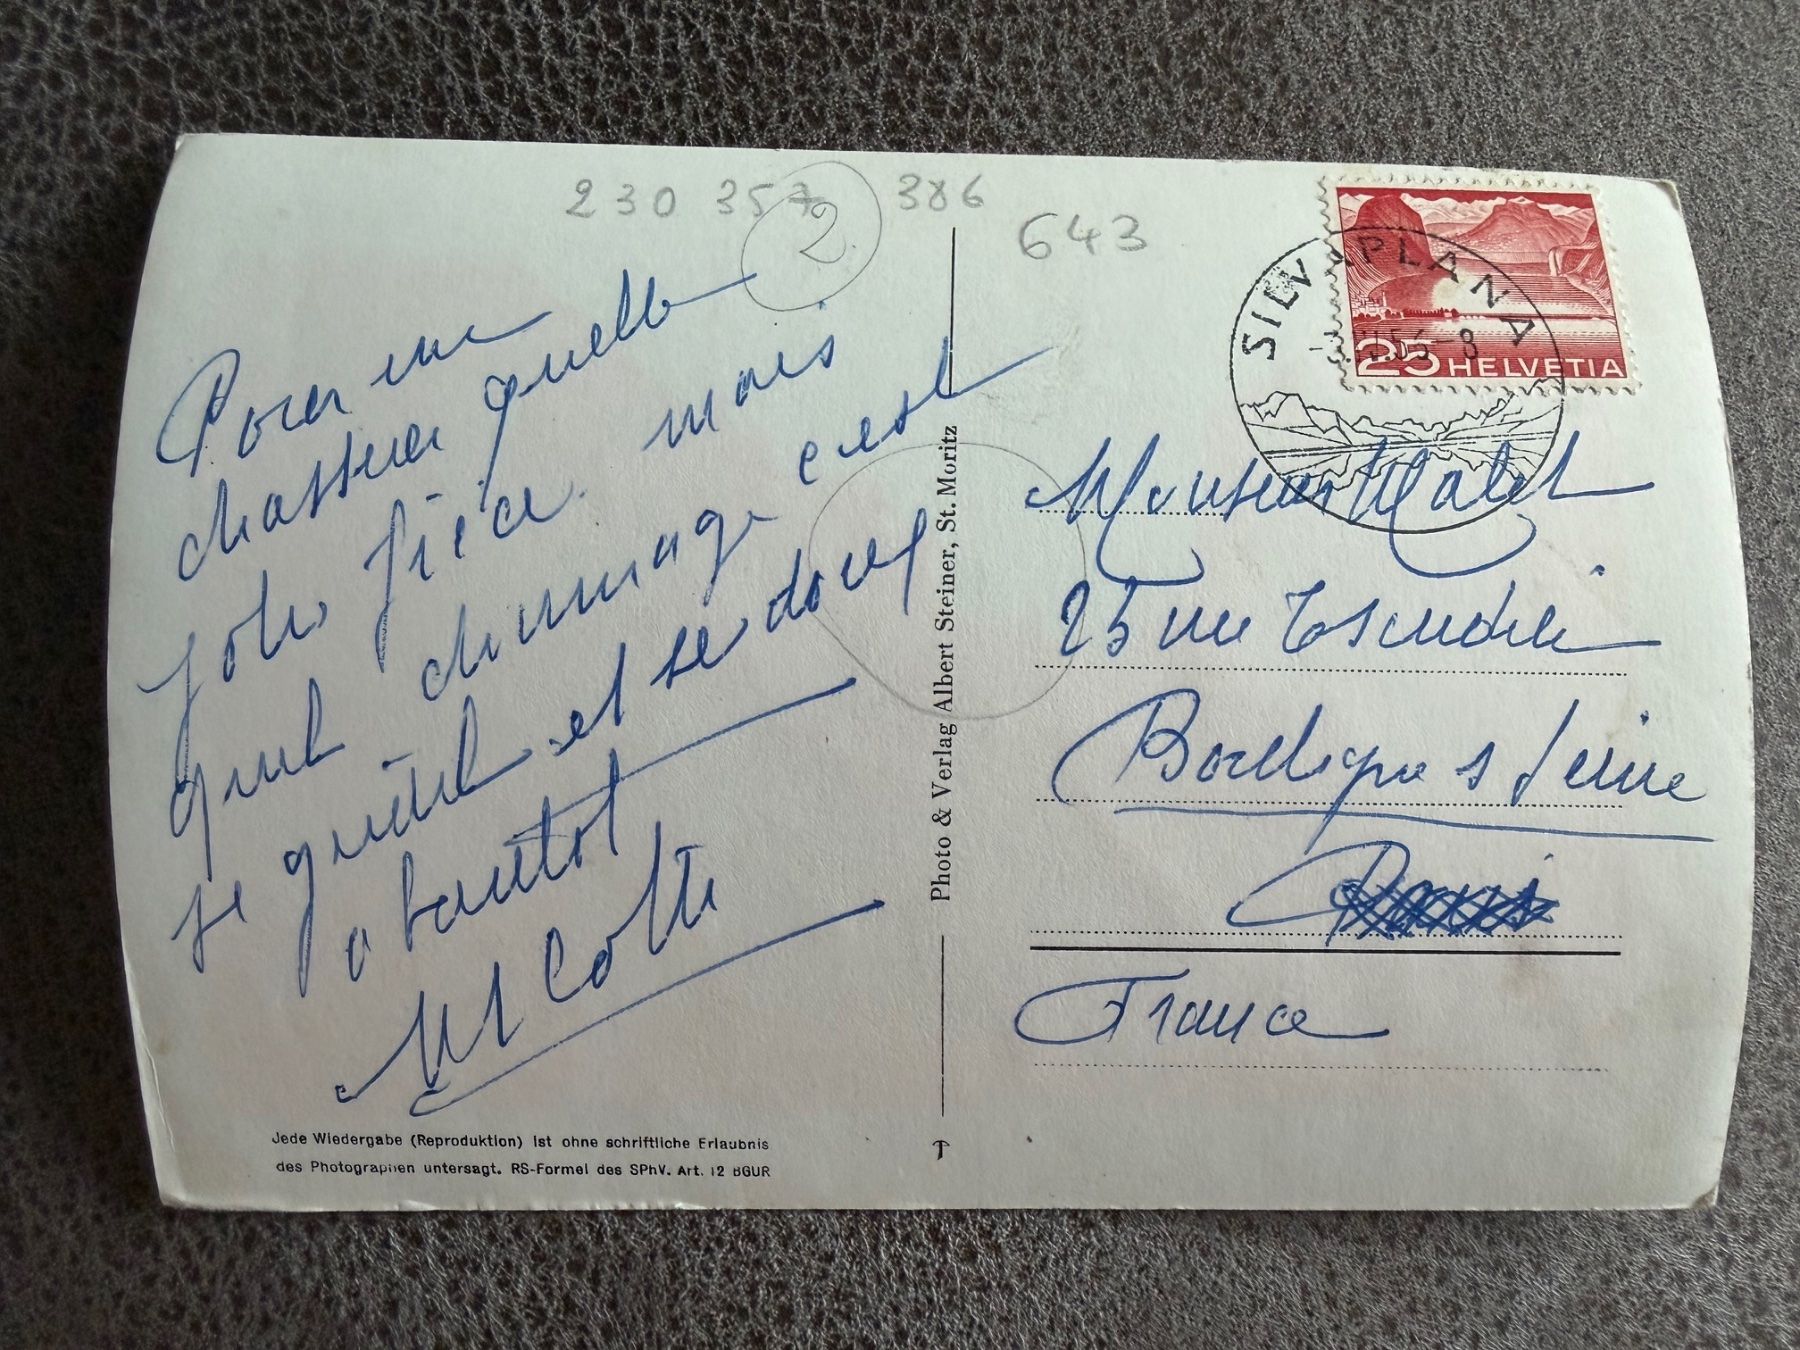 230 357 386
2
643
Pour un
chasseur quelle
jolie pièce mais
quel dommage c'est
se et se
a bientôt
SILVAPLANA
56-8
25 HELVETIA
Monsieur Malet
25 rue
s Seine
Paris
France
Photo & Verlag Albert Steiner, St. Moritz
Jede Wiedergabe (Reproduktion) ist ohne schriftliche Erlaubnis
des Photographen untersagt. RS-Formel des SPhV. Art. 12 BGUR